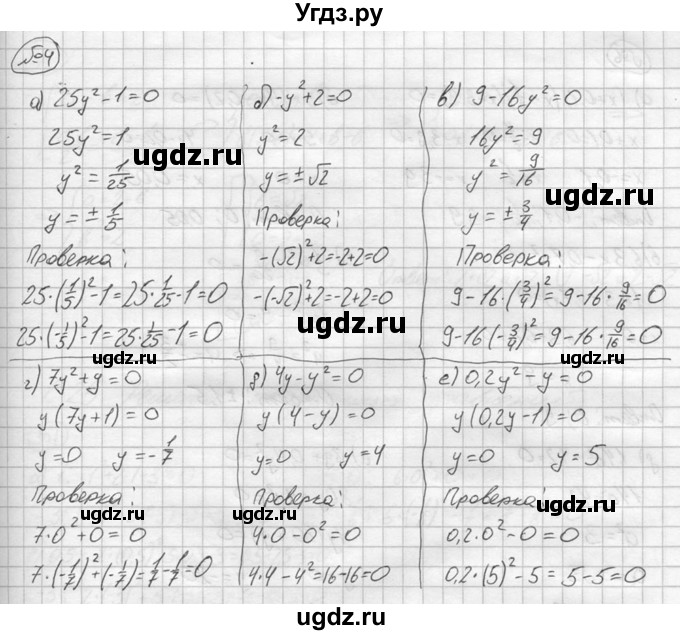 Угдз.ру
№4
а) 25y² - 1 = 0
25y² = 1
y² = 1/25
y = ± 1/5
Проверка:
25·(1/5)² - 1 = 25·1/25 - 1 = 0
25·(-1/5)² - 1 = 25·1/25 - 1 = 0
б) -y² + 2 = 0
y² = 2
y = ± √2
Проверка:
-(√2)² + 2 = -2 + 2 = 0
-(-√2)² + 2 = -2 + 2 = 0
в) 9 - 16y² = 0
16y² = 9
y² = 9/16
y = ± 3/4
Проверка:
9 - 16·(3/4)² = 9 - 16·9/16 = 0
9 - 16(-3/4)² = 9 - 16·9/16 = 0
г) 7y² + y = 0
y(7y + 1) = 0
y = 0 y = -1/7
Проверка:
7·0² + 0 = 0
7·(-1/7)² + (-1/7) = 1/7 - 1/7 = 0
д) 4y - y² = 0
y(4 - y) = 0
y = 0 y = 4
Проверка:
4·0 - 0² = 0
4·4 - 4² = 16 - 16 = 0
е) 0,2y² - y = 0
y(0,2y - 1) = 0
y = 0 y = 5
Проверка:
0,2·0² - 0 = 0
0,2·(5)² - 5 = 5 - 5 = 0
угдз.ру
угдз.ру
угдз.ру
угдз.ру
угдз.ру
угдз.ру
угдз.ру
угдз.ру